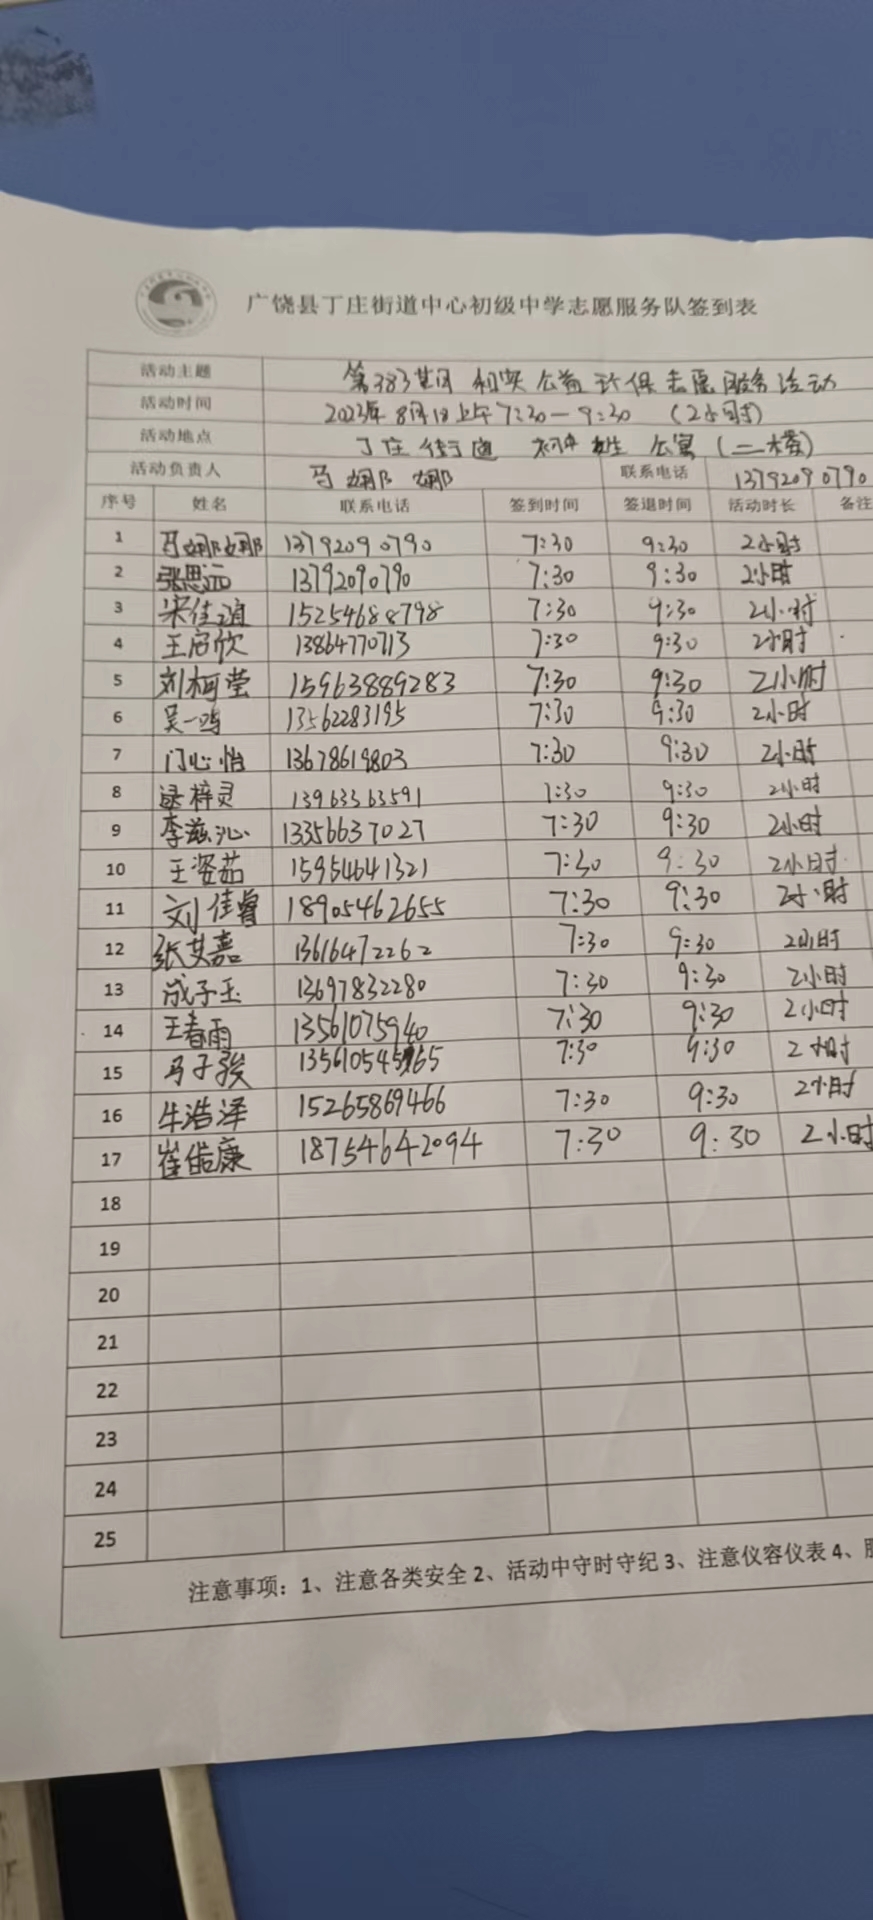 广饶县丁庄街道中心初级中学志愿服务队签到表
活动主题 第383期 和实公益环保志愿服务活动
活动时间 2023年8月1日上午7:30—9:30 (2小时)
活动地点 丁庄街道 公寓(二楼)
活动负责人 马娜娜 联系电话 13792090790
序号 姓名 联系电话 签到时间 签退时间 活动时长 备注
1 马娜娜 13792090790 7:30 9:30 2小时
2 张思远 13792090790 7:30 9:30 2小时
3 宋佳谊 15254688798 7:30 9:30 2小时
4 王启欣 13864770713 7:30 9:30 2小时
5 刘柯莹 15963889283 7:30 9:30 2小时
6 吴一鸣 13562283195 7:30 9:30 2小时
7 门心怡 13678619803 7:30 9:30 2小时
8 梓灵 13963363591 7:30 9:30 2小时
9 李滋沁 13356637027 7:30 9:30 2小时
10 王姿茹 15954641321 7:30 9:30 2小时
11 刘佳睿 18905462655 7:30 9:30 2小时
12 张艾嘉 13616472262 7:30 9:30 2小时
13 成子玉 13697832280 7:30 9:30 2小时
14 王春雨 13561075940 7:30 9:30 2小时
15 马子骏 7:30 9:30 2小时
16 牛浩泽 15265869466 7:30 9:30 2小时
17 崔皓康 18754642094 7:30 9:30 2小时
18
19
20
21
22
23
24
25
注意事项：1、注意各类安全 2、活动中守时守纪 3、注意仪容仪表 4、